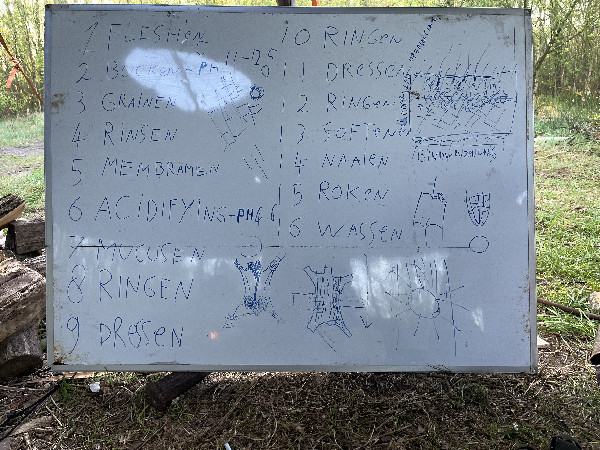 1 FLESHEN
2 BUCKEN - PH 11-12.5
3 GRAINEN
4 RINSEN
5 MEMBRAMEN
6 ACIDIFYING-PH 6.6
7 MUCUSEN
8 RINGEN
9 DRESSEN
10 RINGEN
11 DRESSEN
12 RINGEN
13 SOFTEN
14 NAAIEN
15 ROKEN
16 WASSEN